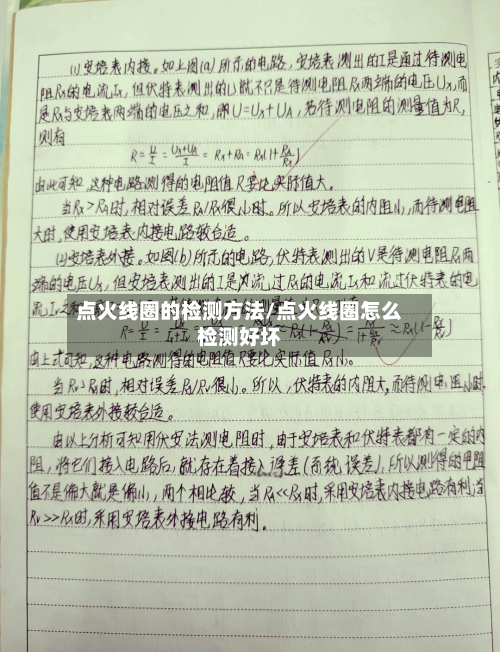 (1)安培表内接。如上图(a)所示的电路,安培表测出的I是通过待测电
阻Rx的电流Ix,但伏特表测出的U就不只是待测电阻Rx两端的电压Ux,而
是Rx与安培表两端的电压之和,即U=Ux+UA,若待测电阻的测量值为R,
则有
R=U/I=(Ux+UA)/I=Rx+RA=Rx(1+RA/Rx)
由此可知,这种电路测得的电阻值R要比实际值大。
当Rx>RA时,相对误差RA/Rx很小时。所以安培表的内阻小,而待测电阻
大时,使用安培表内接电路较合适。
(2)安培表外接。如图(b)所示的电路,伏特表测出的V是待测电阻Rx两
端的电压Ux,但安培表测出的I是为流过Rx的电流Ix和流过伏特表的电
流Iv之和
点火线圈的检测方法/点火线圈怎么
检测好坏
≈Rx(1-Rx/Rv)
由上式可知,这种电路测得的电阻值R要比实际值Rx小。
当Rv>Rx时,相对误差Rx/Rv很小。所以,伏特表的内阻大,而待测电阻小时,
使用安培表外接较合适。
由以上分析可知用伏安法测电阻时,由于安培表和伏特表都有一定的内
阻,将它们接入电路后,就存在着接入误差(系统误差),所以测得的电阻
值不是偏大就是偏小,两个相比较,当RA<<Rx时,采用安培表内接电路有利;当
Rv>>Rx时,采用安培表外接电路有利。